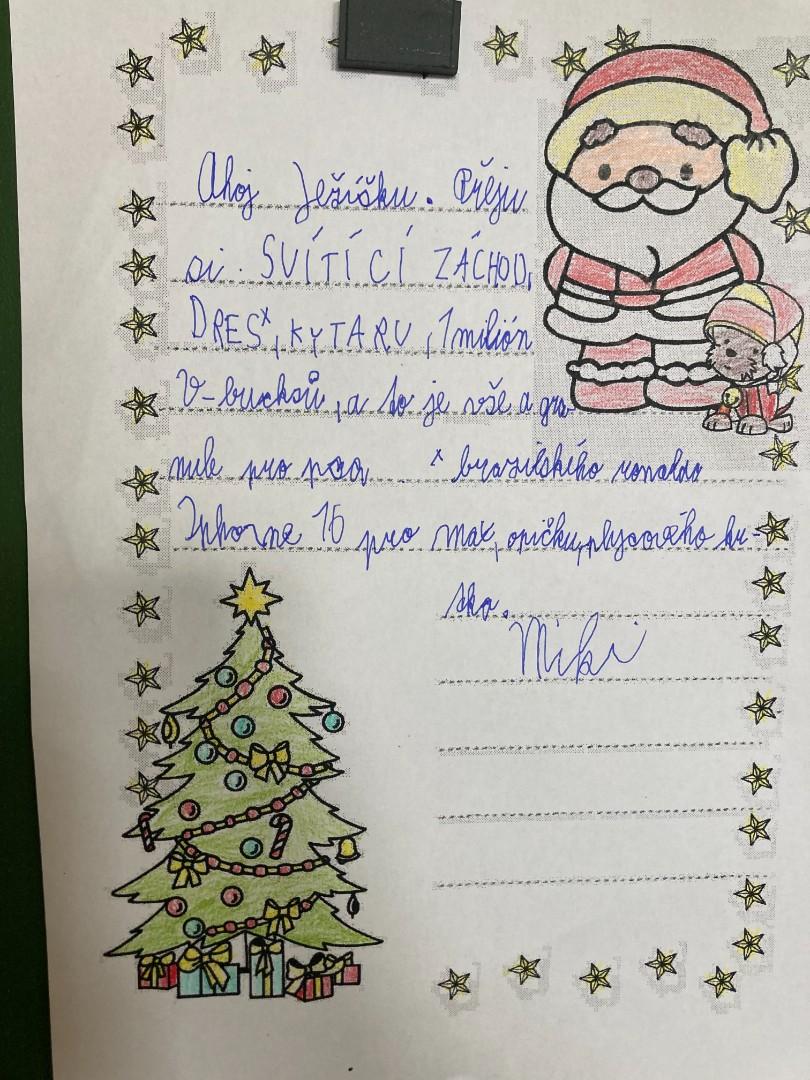 Ahoj Ježíšku. Přeju
si. SVÍTÍCÍ ZÁCHOD,
DRESˣ, KYTARU, 1 milión
V-bucksů, a to je vše a gra-
nule pro psa ˣ brazilského ronalda
Inhorne 16 pro max, opičku, plyšového ku-
ska.
Miki